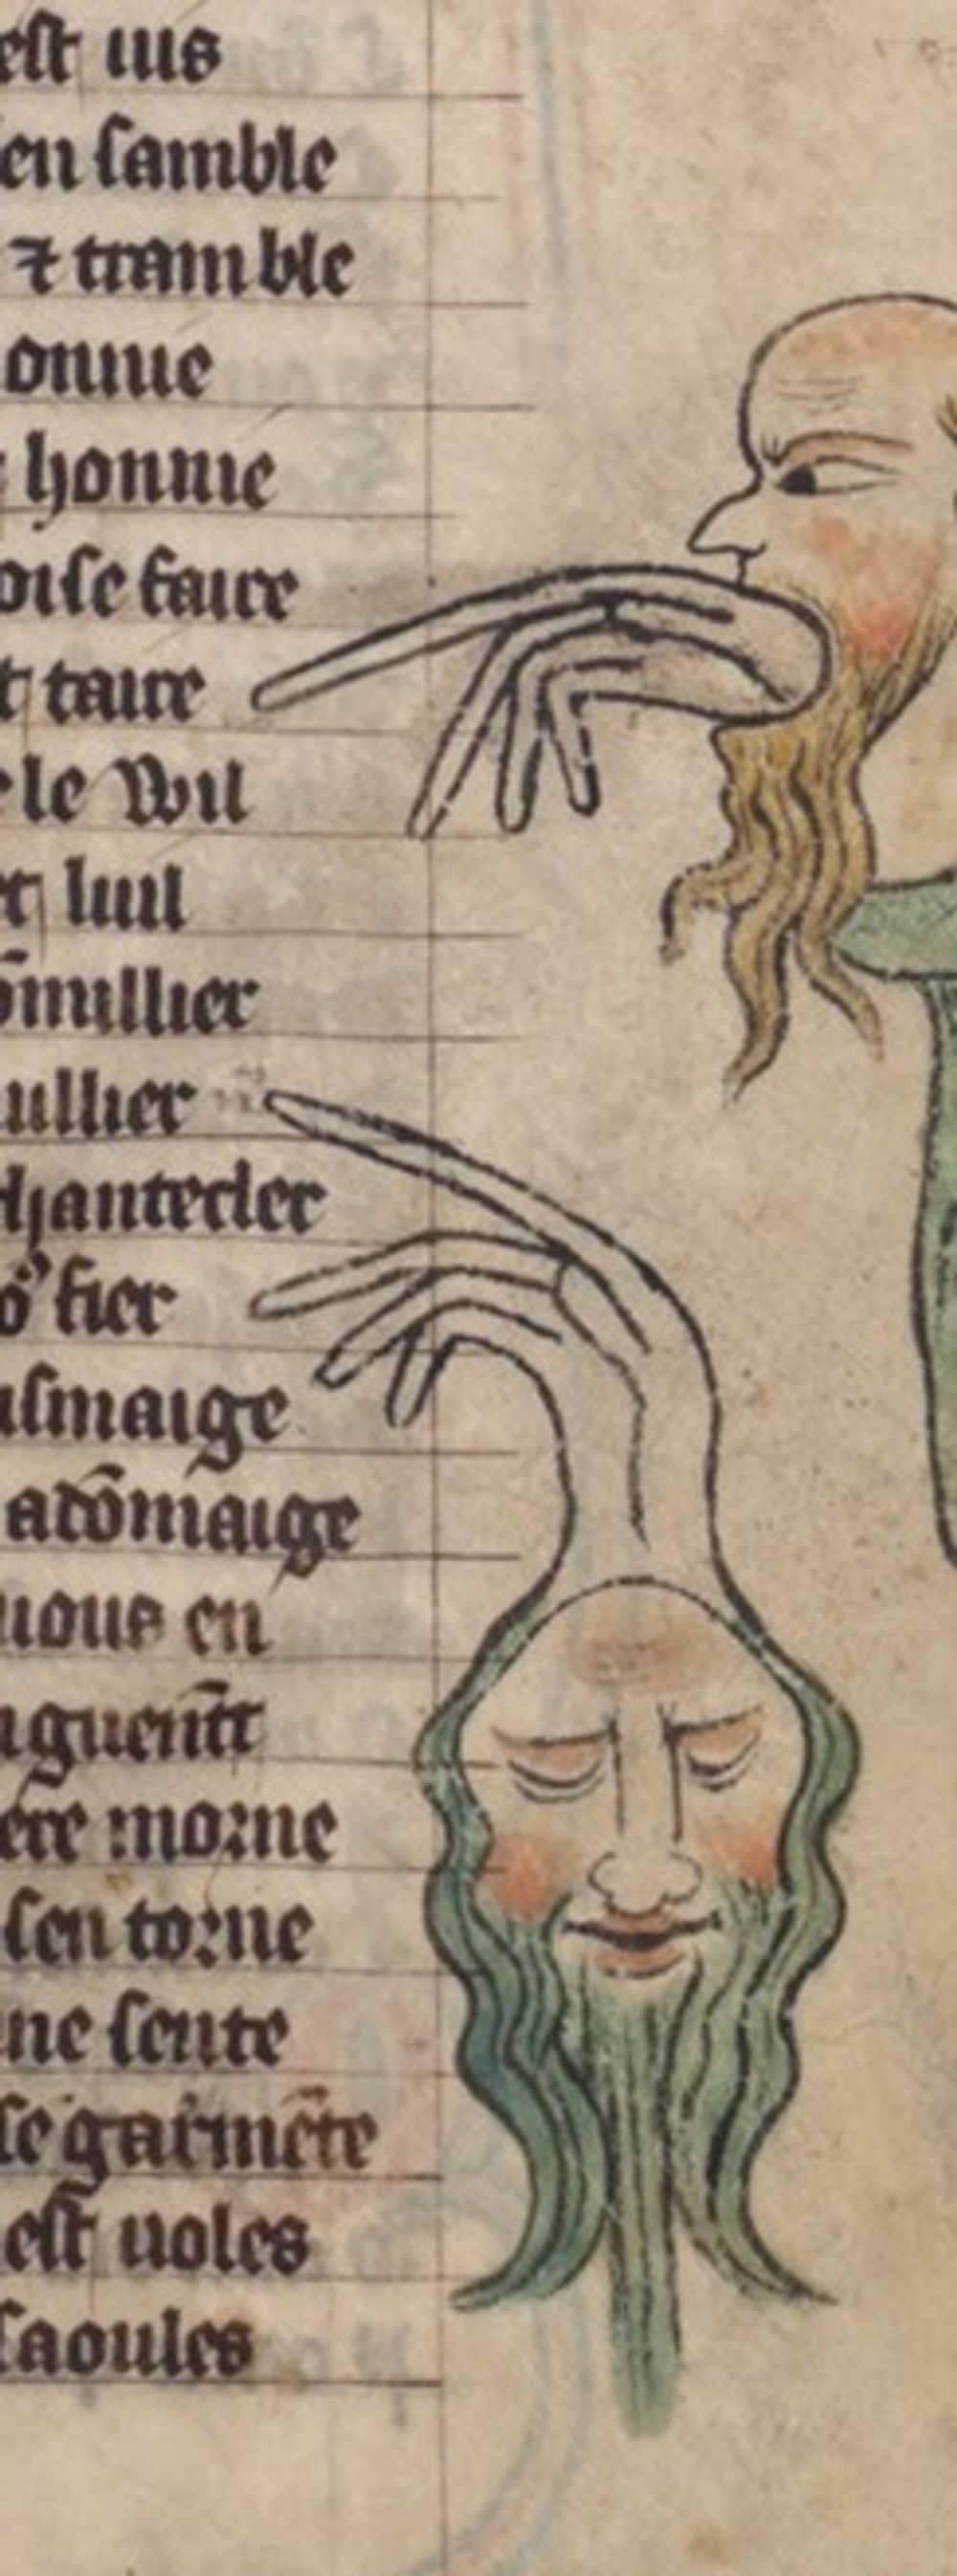 est ius
en samble
⁊ tramble
onnie
honnie
oise faire
t taire
le wil
luil
õnillier
ullier
chantecler
fier
usmaige
adõmaige
uous en
guemt̃
ere morne
sen torne
ne sente
se gaimẽte
est uoles
saoules